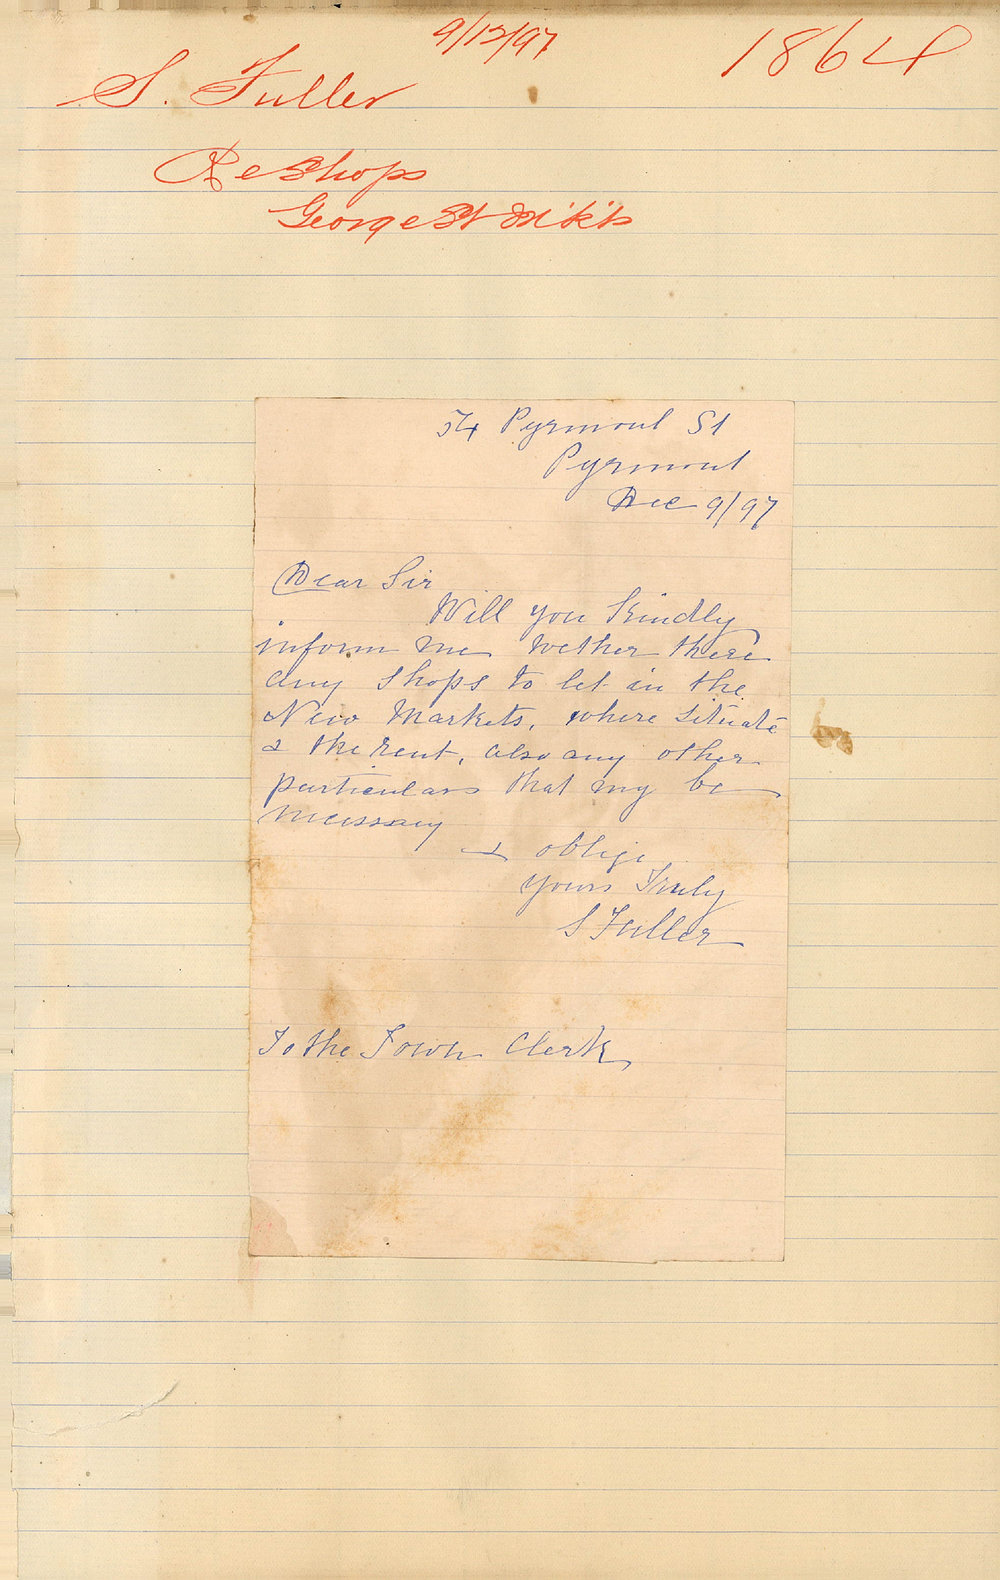 9/12/97
1864
S. Fuller
Re Shops
George St Mkts
54 Pyrmont St
Pyrmont
Dec 9/97
Dear Sir
Will you kindly
inform me wether there
any shops to let in the
New Markets, where situate
& the rent, also any other
particulars that my be
necessary
& oblige
yours Truly
S Fuller
To the Town Clerk